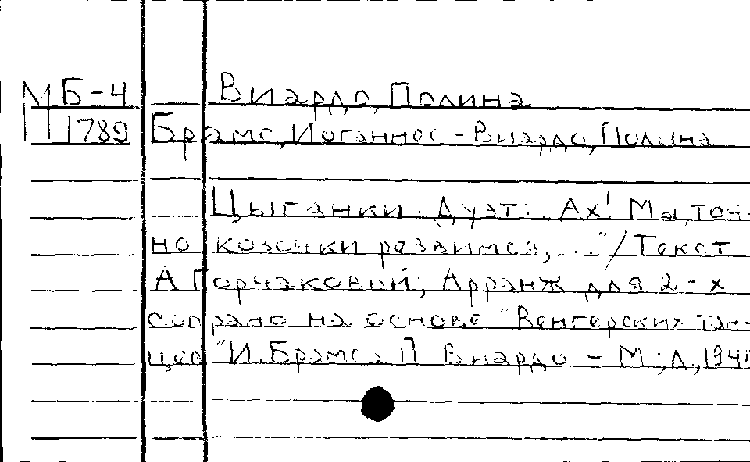 М Б-4 Виардо, Полина
П 1789 Брамс, Иоганнес - Виардо, Полина
Цыганки. Дуэт: „Ах! Мы, точ-
но козочки резвимся,..."/Текст
А Горчаковой; Арранж для 2-х
сопрано на основе "Венгерских тан-
цев" И. Брамса П Виардо - М.;Л.,